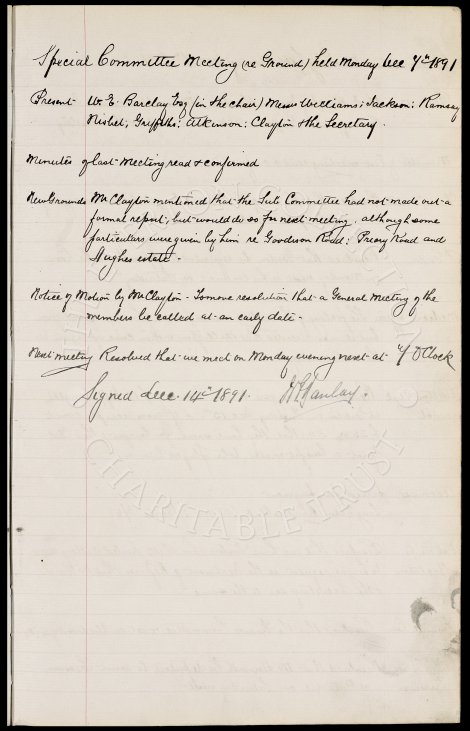 Special Committee Meeting (re Ground) held Monday Dec 7th 1891
Present W. E. Barclay Esq (in the chair) Messrs Williams; Jackson; Ramsay
Nisbet; Griffiths; Atkinson; Clayton & the Secretary.
Minutes of last Meeting read & confirmed
New Grounds Mr Clayton mentioned that the Sub Committee had not made out a
formal report, but would do so for next meeting, although some
particulars were given by him re Goodison Road; Priory Road and
Hughes estate.
Notice of Motion by Mr Clayton - To move resolution that a General Meeting of the
members be called at an early date.
Next meeting Resolved that we meet on Monday evening next at 7 O'Clock
Signed Dec. 14th 1891. W E Barclay.
CHARITABLE TRUST